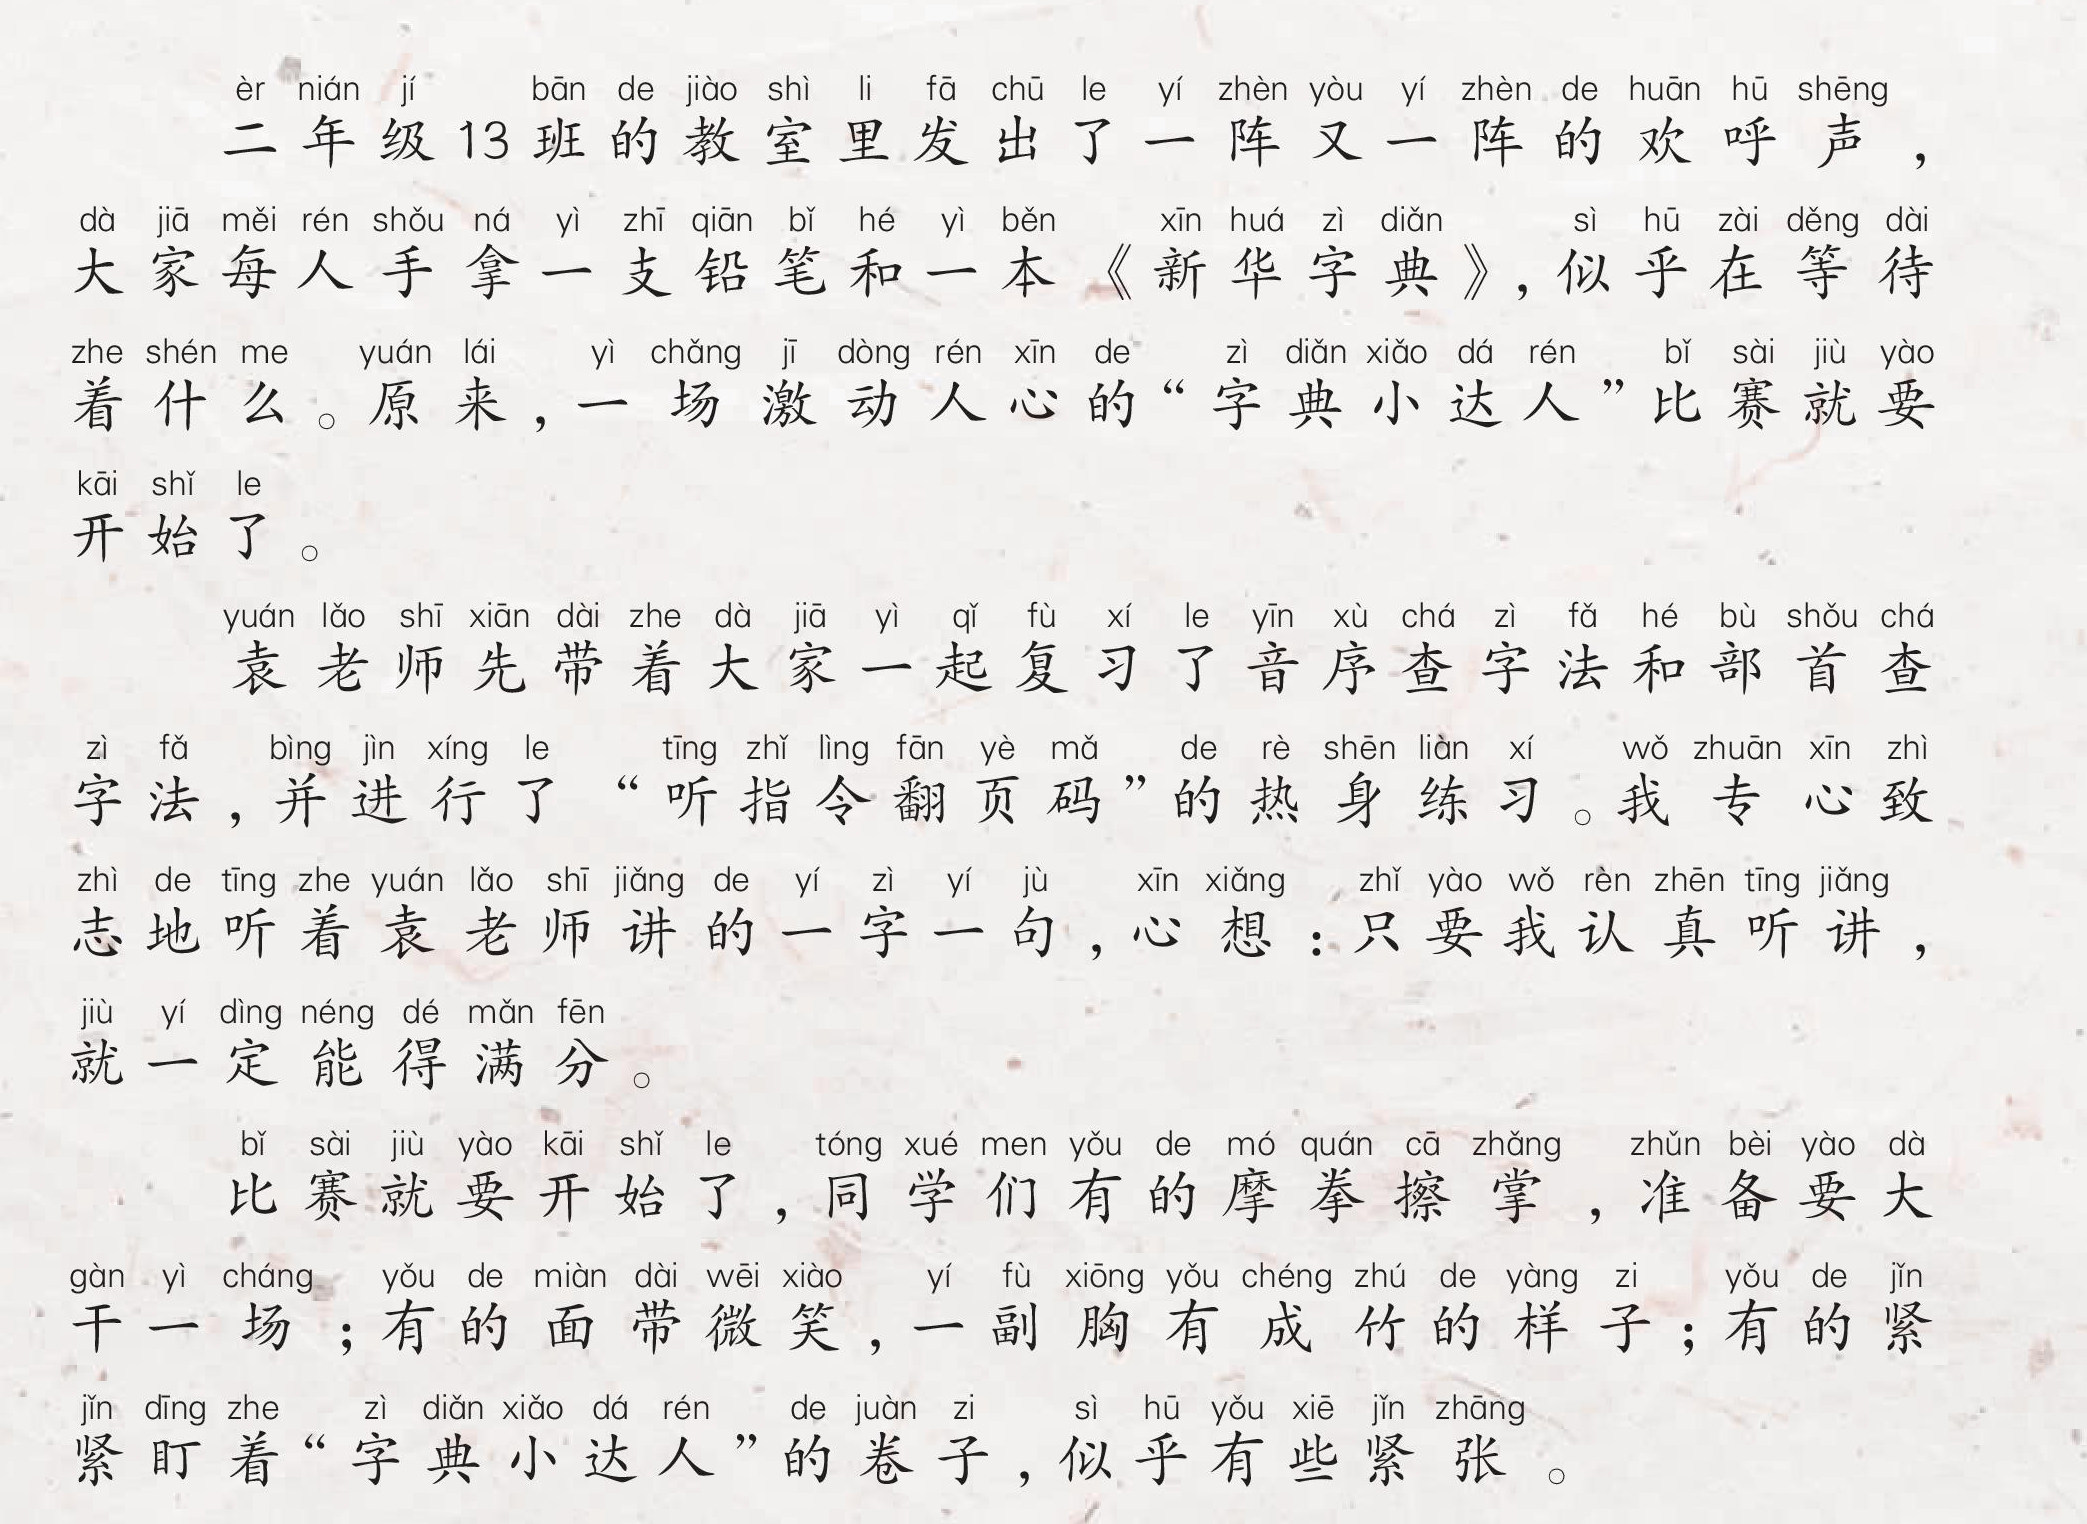 èr nián jí bān de jiào shì li fā chū le yí zhèn yòu yí zhèn de huān hū shēng
二年级13班的教室里发出了一阵又一阵的欢呼声，
dà jiā měi rén shǒu ná yì zhī qiān bǐ hé yì běn xīn huá zì diǎn sì hū zài děng dài
大家每人手拿一支铅笔和一本《新华字典》，似乎在等待
zhe shén me yuán lái yì chǎng jī dòng rén xīn de zì diǎn xiǎo dá rén bǐ sài jiù yào
着什么。原来，一场激动人心的“字典小达人”比赛就要
kāi shǐ le
开始了。
yuán lǎo shī xiān dài zhe dà jiā yì qǐ fù xí le yīn xù chá zì fǎ hé bù shǒu chá
袁老师先带着大家一起复习了音序查字法和部首查
zì fǎ bìng jìn xíng le tīng zhǐ lìng fān yè mǎ de rè shēn liàn xí wǒ zhuān xīn zhì
字法，并进行了“听指令翻页码”的热身练习。我专心致
zhì de tīng zhe yuán lǎo shī jiǎng de yí zì yí jù xīn xiǎng zhǐ yào wǒ rèn zhēn tīng jiǎng
志地听着袁老师讲的一字一句，心想：只要我认真听讲，
jiù yí dìng néng dé mǎn fēn
就一定能得满分。
bǐ sài jiù yào kāi shǐ le tóng xué men yǒu de mó quán cā zhǎng zhǔn bèi yào dà
比赛就要开始了，同学们有的摩拳擦掌，准备要大
gàn yì cháng yǒu de miàn dài wēi xiào yí fù xiōng yǒu chéng zhú de yàng zi yǒu de jǐn
干一场；有的面带微笑，一副胸有成竹的样子；有的紧
jǐn dīng zhe zì diǎn xiǎo dá rén de juàn zi sì hū yǒu xiē jǐn zhāng
紧盯着“字典小达人”的卷子，似乎有些紧张。